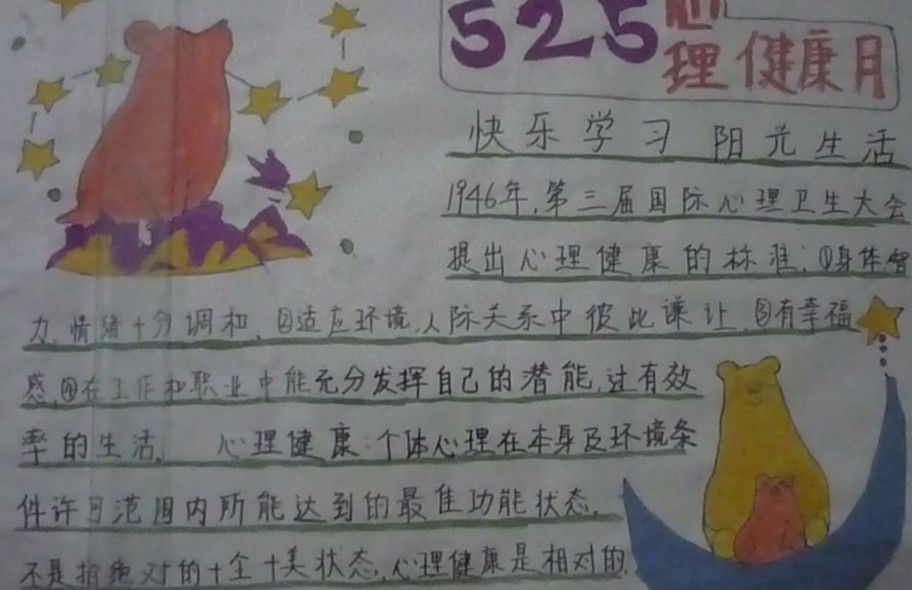 525心
理健康月
快乐学习 阳光生活
1946年,第三届国际心理卫生大会
提出心理健康的标准:①身体智
力、情绪十分调和、②适应环境,人际关系中彼此谦让、③有幸福
感、④在工作和职业中能充分发挥自己的潜能,过有效
率的生活。 心理健康:个体心理在本身及环境条
件许可范围内所能达到的最佳功能状态,
不是指绝对的十全十美状态,心理健康是相对的